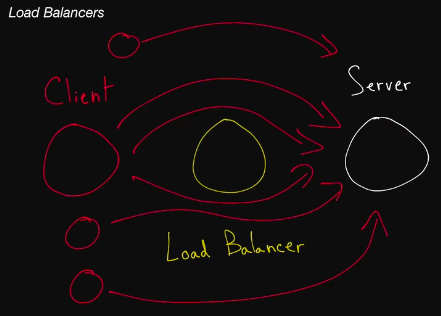 Load Balancers
Client
Server
Load Balancer